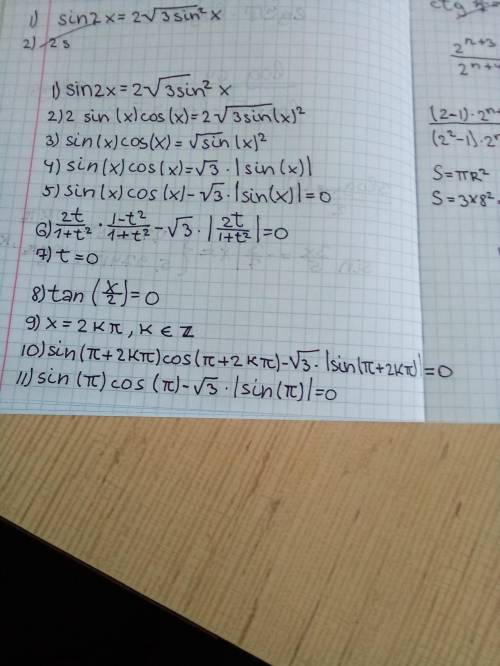 1) sin2x = 2√3sin² x
2) 2s
1) sin2x = 2√3sin² x
2) 2 sin (x)cos(x) = 2√3sin(x)²
3) sin(x)cos(x) = √sin(x)²
4) sin(x)cos(x) = √3 · |sin(x)|
5) sin(x)cos(x) - √3 · |sin(x)| = 0
6) 2t/1+t² · 1-t²/1+t² - √3 · |2t/1+t²| = 0
7) t = 0
8) tan (x/2) = 0
9) x = 2kπ, k ∈ Z
10) sin(π+2kπ)cos(π+2kπ) - √3 · |sin(π+2kπ)| = 0
11) sin(π)cos(π) - √3 · |sin(π)| = 0
ctg
2ⁿ⁺³
2ⁿ⁺⁴
(2-1)·2ⁿ
(2²-1)·2ⁿ
S = πR²
S = 3×8²